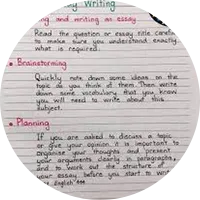 Writing
and writing an essay
Read the question or essay title carefully
to make sure you understand exactly
what is required.
• Brainstorming
Quickly note down some ideas on the
topic as you think of them. Then write
down some vocabulary that you know
you will need to write about this
subject.
• Planning
If you are asked to discuss a topic
or give your opinion it is important to
organise your thoughts and present
your arguments clearly in paragraphs,
and to work out the structure of
your essay before you start to write
English